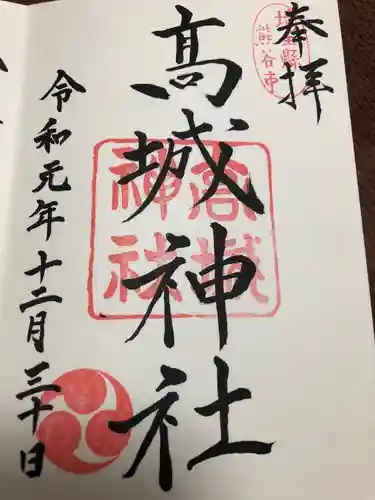 奉拝
埼玉縣
熊谷市
髙城神社
高城
神社
令和元年十二月三十日